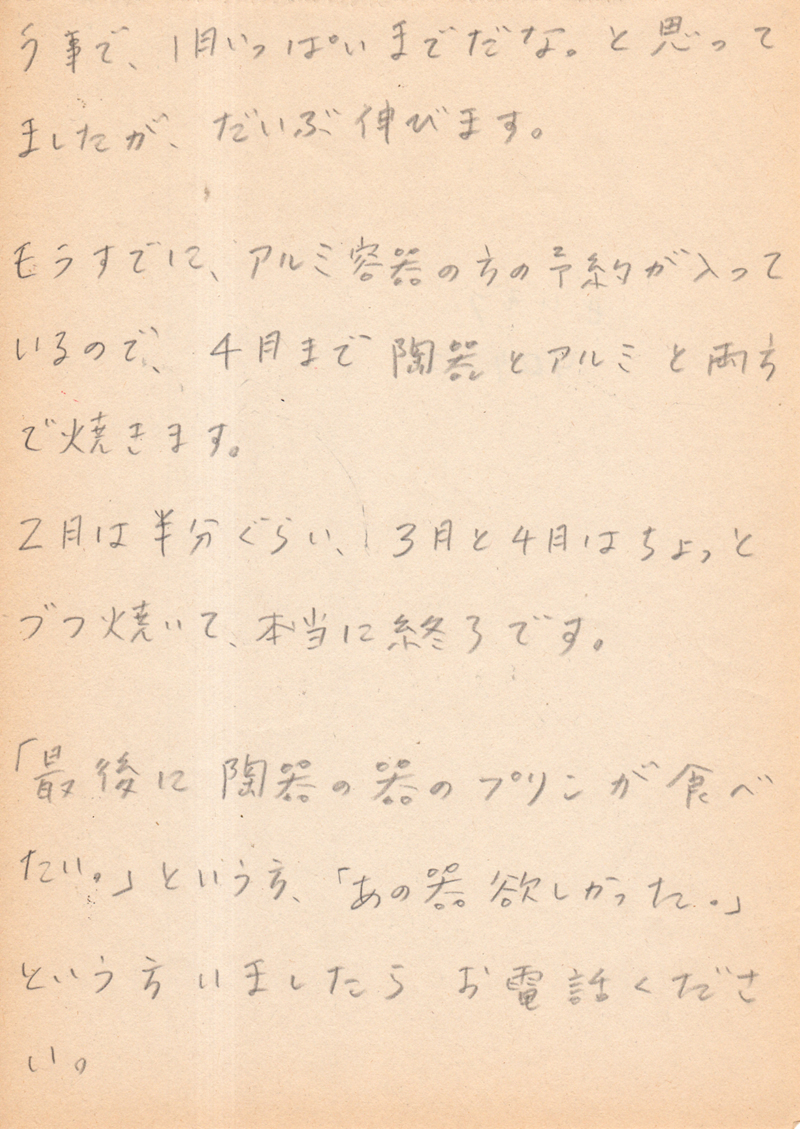 う事で、1月いっぱいまでだな。と思って
ましたが、だいぶ伸びます。
もうすでに、アルミ容器の方の予約が入って
いるので、4月まで陶器とアルミと両方
で焼きます。
2月は半分ぐらい、3月と4月はちょっと
づつ焼いて、本当に終了です。
「最後に陶器の器のプリンが食べ
たい。」という方、「あの器欲しかった。」
という方いましたらお電話くださ
い。